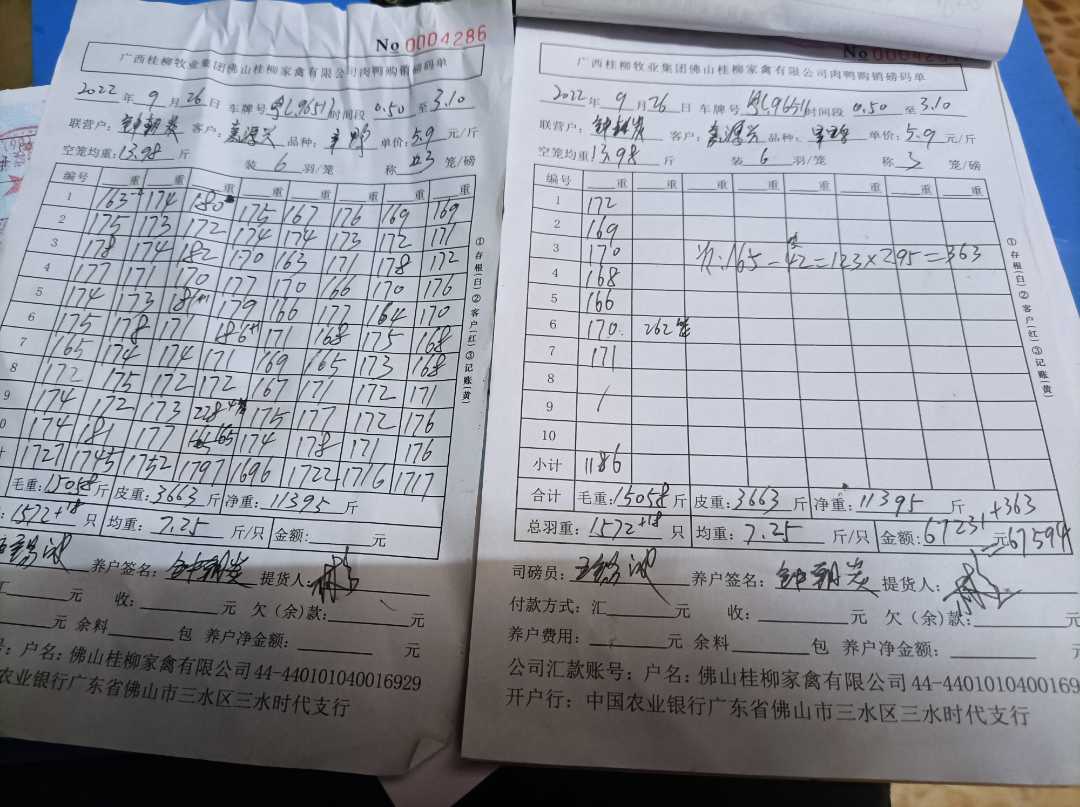 No 0004286
广西桂柳牧业集团佛山桂柳家禽有限公司肉鸭购销磅码单
2022年9月26日 车牌号 时间段 0.50 至 3.10
联营户: 钟朝炎 客户: 品种: 单价: 5.9 元/斤
空笼均重: 13.98 斤 装 6 羽/笼 称 3 笼/磅
编号 重 重 重 重 重 重 重 重
1 163 174 180 175 167 176 169 169
2 175 173 172 174 174 175 172 171
3 178 174 182 170 163 171 178 172
4 177 171 170 177 170 166 170 176
5 174 173 181 179 166 177 164 170
6 175 178 171 186 171 168 175 168
7 165 174 174 171 169 165 173 168
8 172 175 172 172 167 171 172 171
9 174 172 173 228 175 177 172 176
0 174 181 177 165 174 178 171 176
1727 1745 1752 1797 1696 1722 1716 1717
毛重: 15058 斤 皮重: 3663 斤 净重: 11395 斤
1572+18 只 均重: 7.25 斤/只 金额: 元
养户签名: 钟朝炎 提货人:
汇 元 收: 元 欠(余)款: 元
元 余料 包 养户净金额: 元
号: 户名: 佛山桂柳家禽有限公司 44-440101040016929
农业银行广东省佛山市三水区三水时代支行
①存根(白)②客户(红)③记账(黄)
No
广西桂柳牧业集团佛山桂柳家禽有限公司肉鸭购销磅码单
2022年9月26日 车牌号 时间段 0.50 至 3.10
联营户: 钟朝炎 客户: 品种: 单价: 5.9 元/斤
空笼均重: 13.98 斤 装 6 羽/笼 称 3 笼/磅
编号 重 重 重 重 重 重 重 重
1 172
2 169
3 170 165-42=123×2.95=363
4 168
5 166
6 170. 262笼
7 171
8
9 /
10
小计 1186
合计 毛重: 15058 斤 皮重: 3663 斤 净重: 11395 斤
总羽重: 1572+18 只 均重: 7.25 斤/只 金额: 67231+363 元=67594
司磅员: 养户签名: 钟朝炎 提货人:
付款方式: 汇 元 收: 元 欠(余)款: 元
养户费用: 元 余料 包 养户净金额: 元
公司汇款账号: 户名: 佛山桂柳家禽有限公司 44-4401010400169
开户行: 中国农业银行广东省佛山市三水区三水时代支行
①存根(白)②客户(红)③记账(黄)